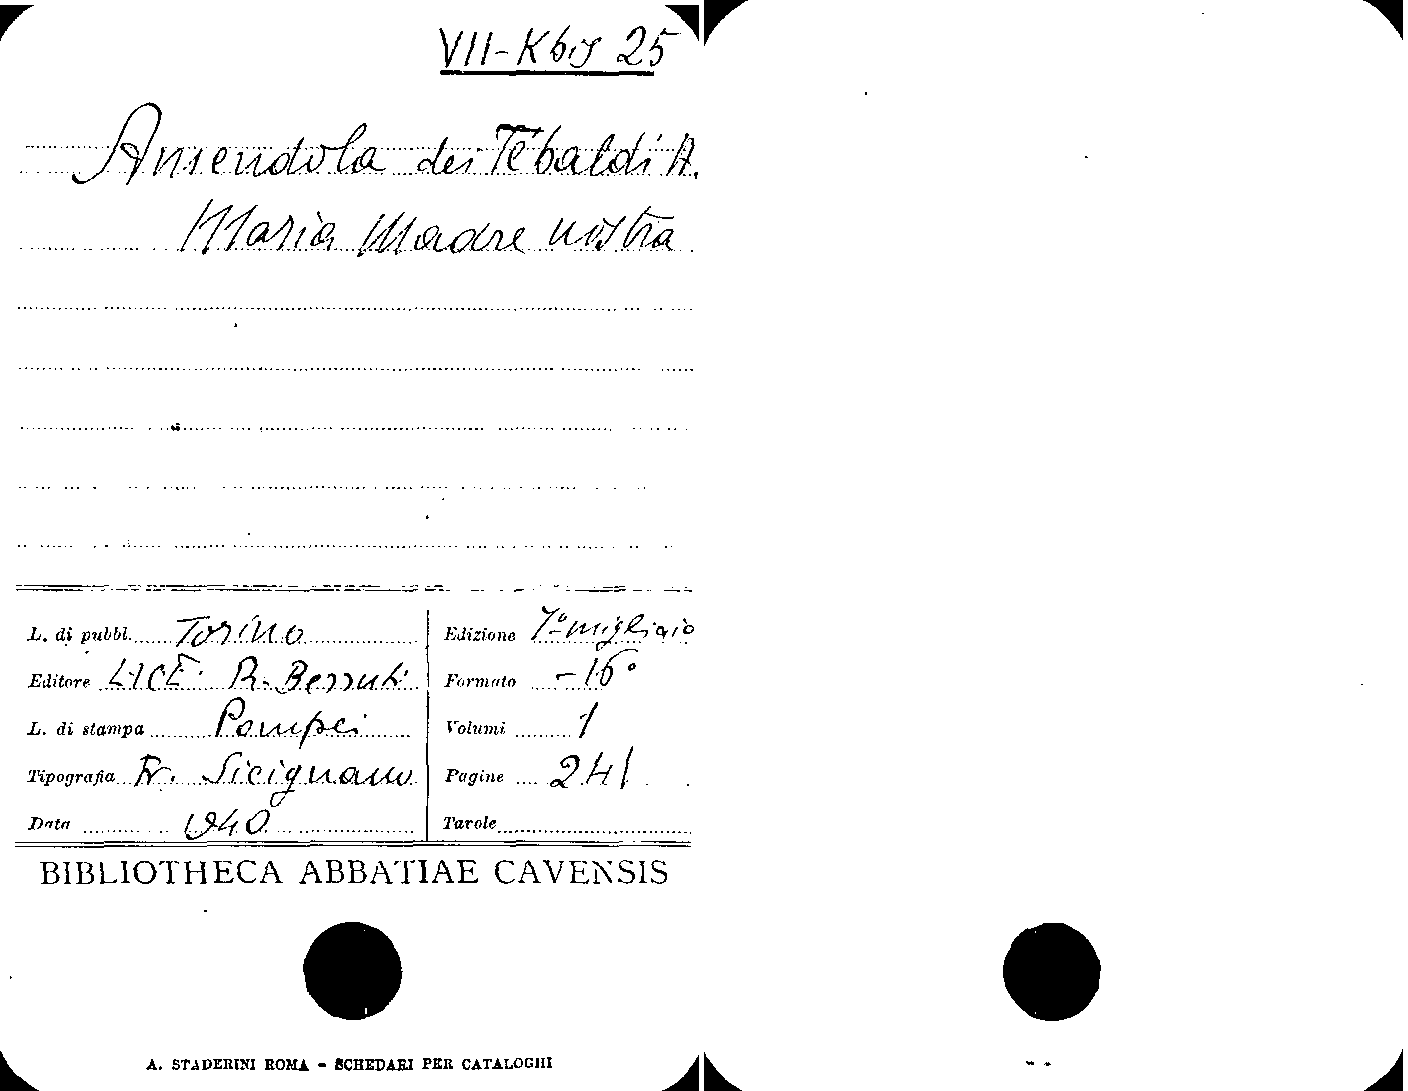 VII-K bis 25
Amendola dei Tebaldi A.
Maria Madre nostra
L. di pubbl. Torino
Edizione 7° migliaio
Editore L.I.C.E. R. Berruti
Formato -16°
L. di stampa Pompei
Volumi 1
Tipografia Fr. Sicignano
Pagine 241
Data 1940
Tavole
BIBLIOTHECA ABBATIAE CAVENSIS
A. STADERINI ROMA - SCHEDARI PER CATALOGHI